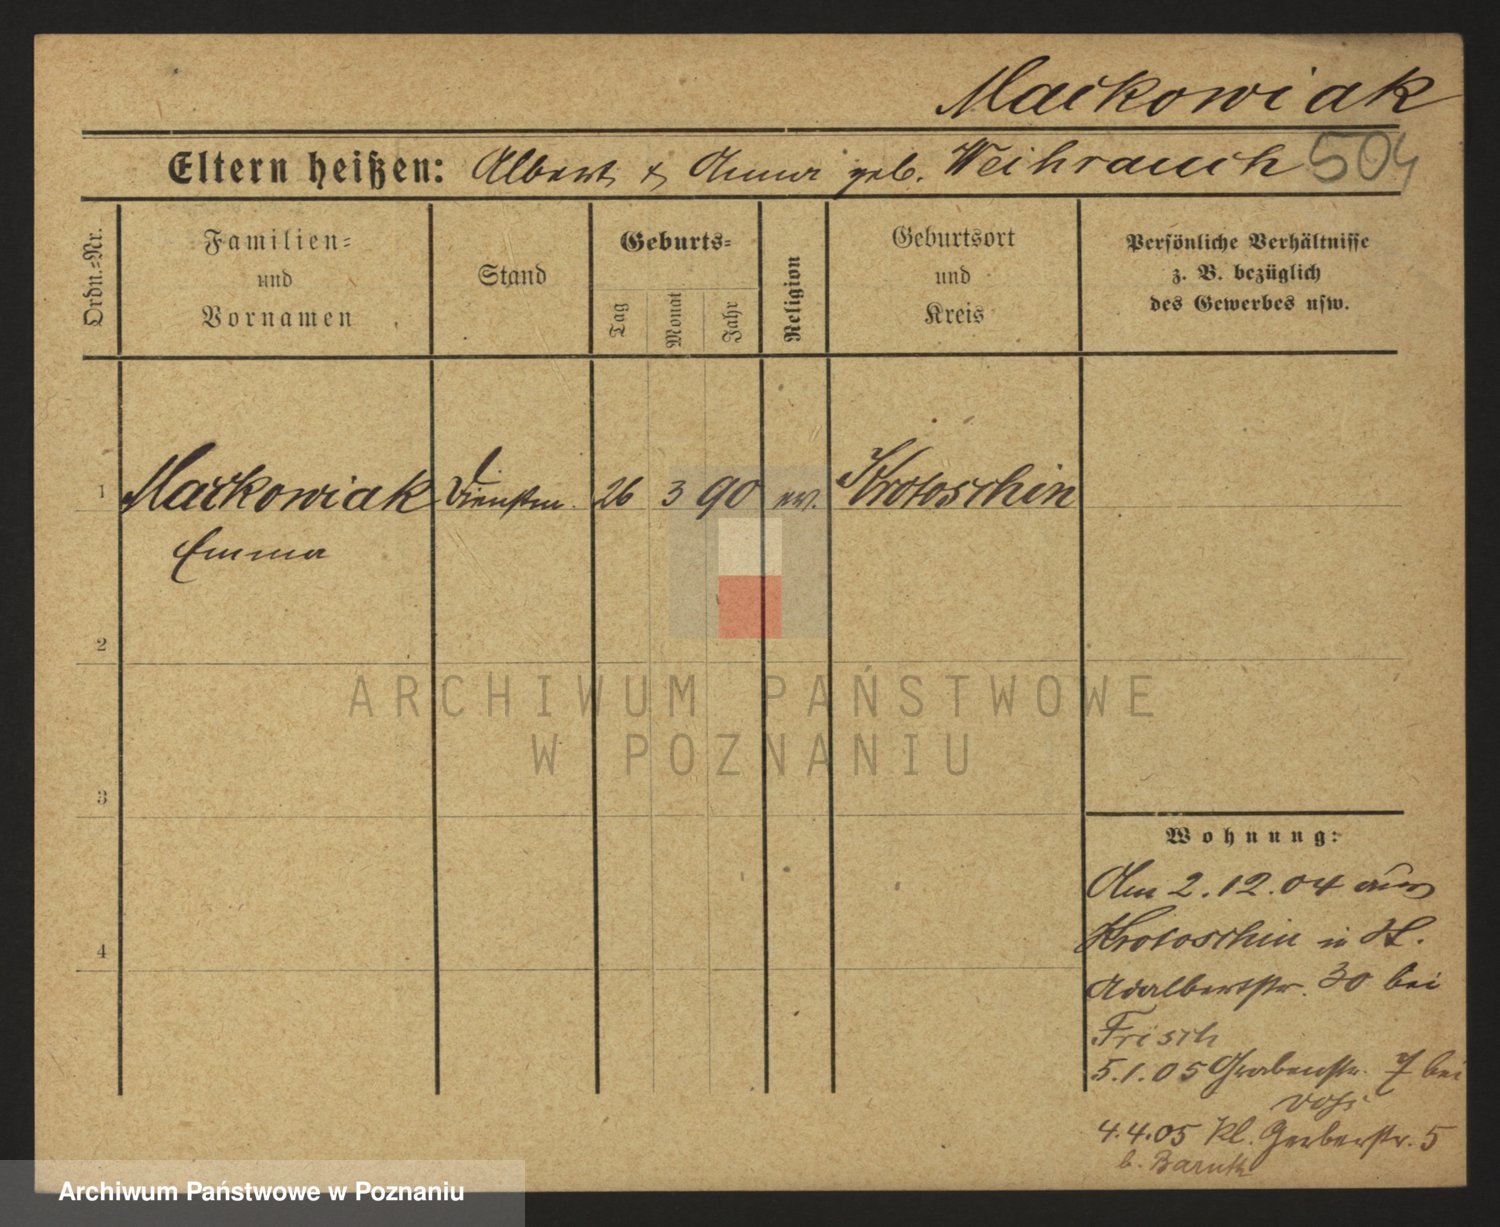 Maćkowiak
Eltern heißen: Albert & Anna geb. Weihrauch 504
Ordn.-Nr.
Familien-
und
Vornamen
Stand
Geburts-
Tag
Monat
Jahr
Religion
Geburtsort
und
Kreis
Persönliche Verhältnisse
z. B. bezüglich
des Gewerbes usw.
1 Maćkowiak Dienstm. 26 3 90 ev. Krotoschin
Emma
2
ARCHIWUM PAŃSTWOWE
W POZNANIU
3
Wohnung:
Am 2.12.04 aus
Krotoschin in St.
Adalbertstr. 30 bei
Frisch
4
5.1.05 Grabenstr. 7 bei
4.4.05 Kl. Gerberstr. 5
b.
Archiwum Państwowe w Poznaniu